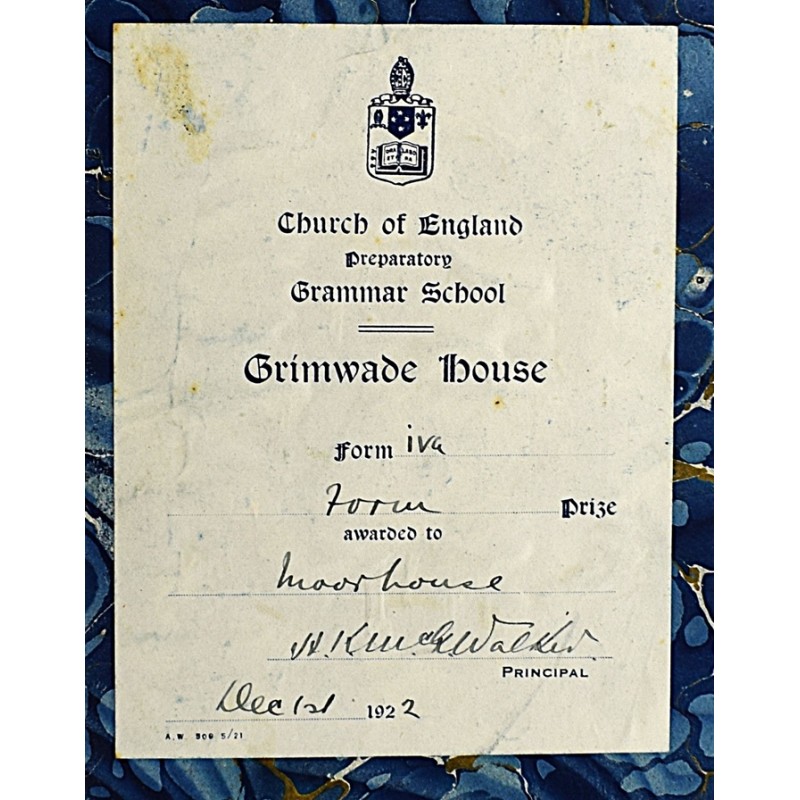 ORA ET LABORA
Church of England
Preparatory
Grammar School
Grimwade House
Form iva
Form Prize
awarded to
Moorhouse
Walker
PRINCIPAL
Dec 1st 1922
A.W. 500 5/21